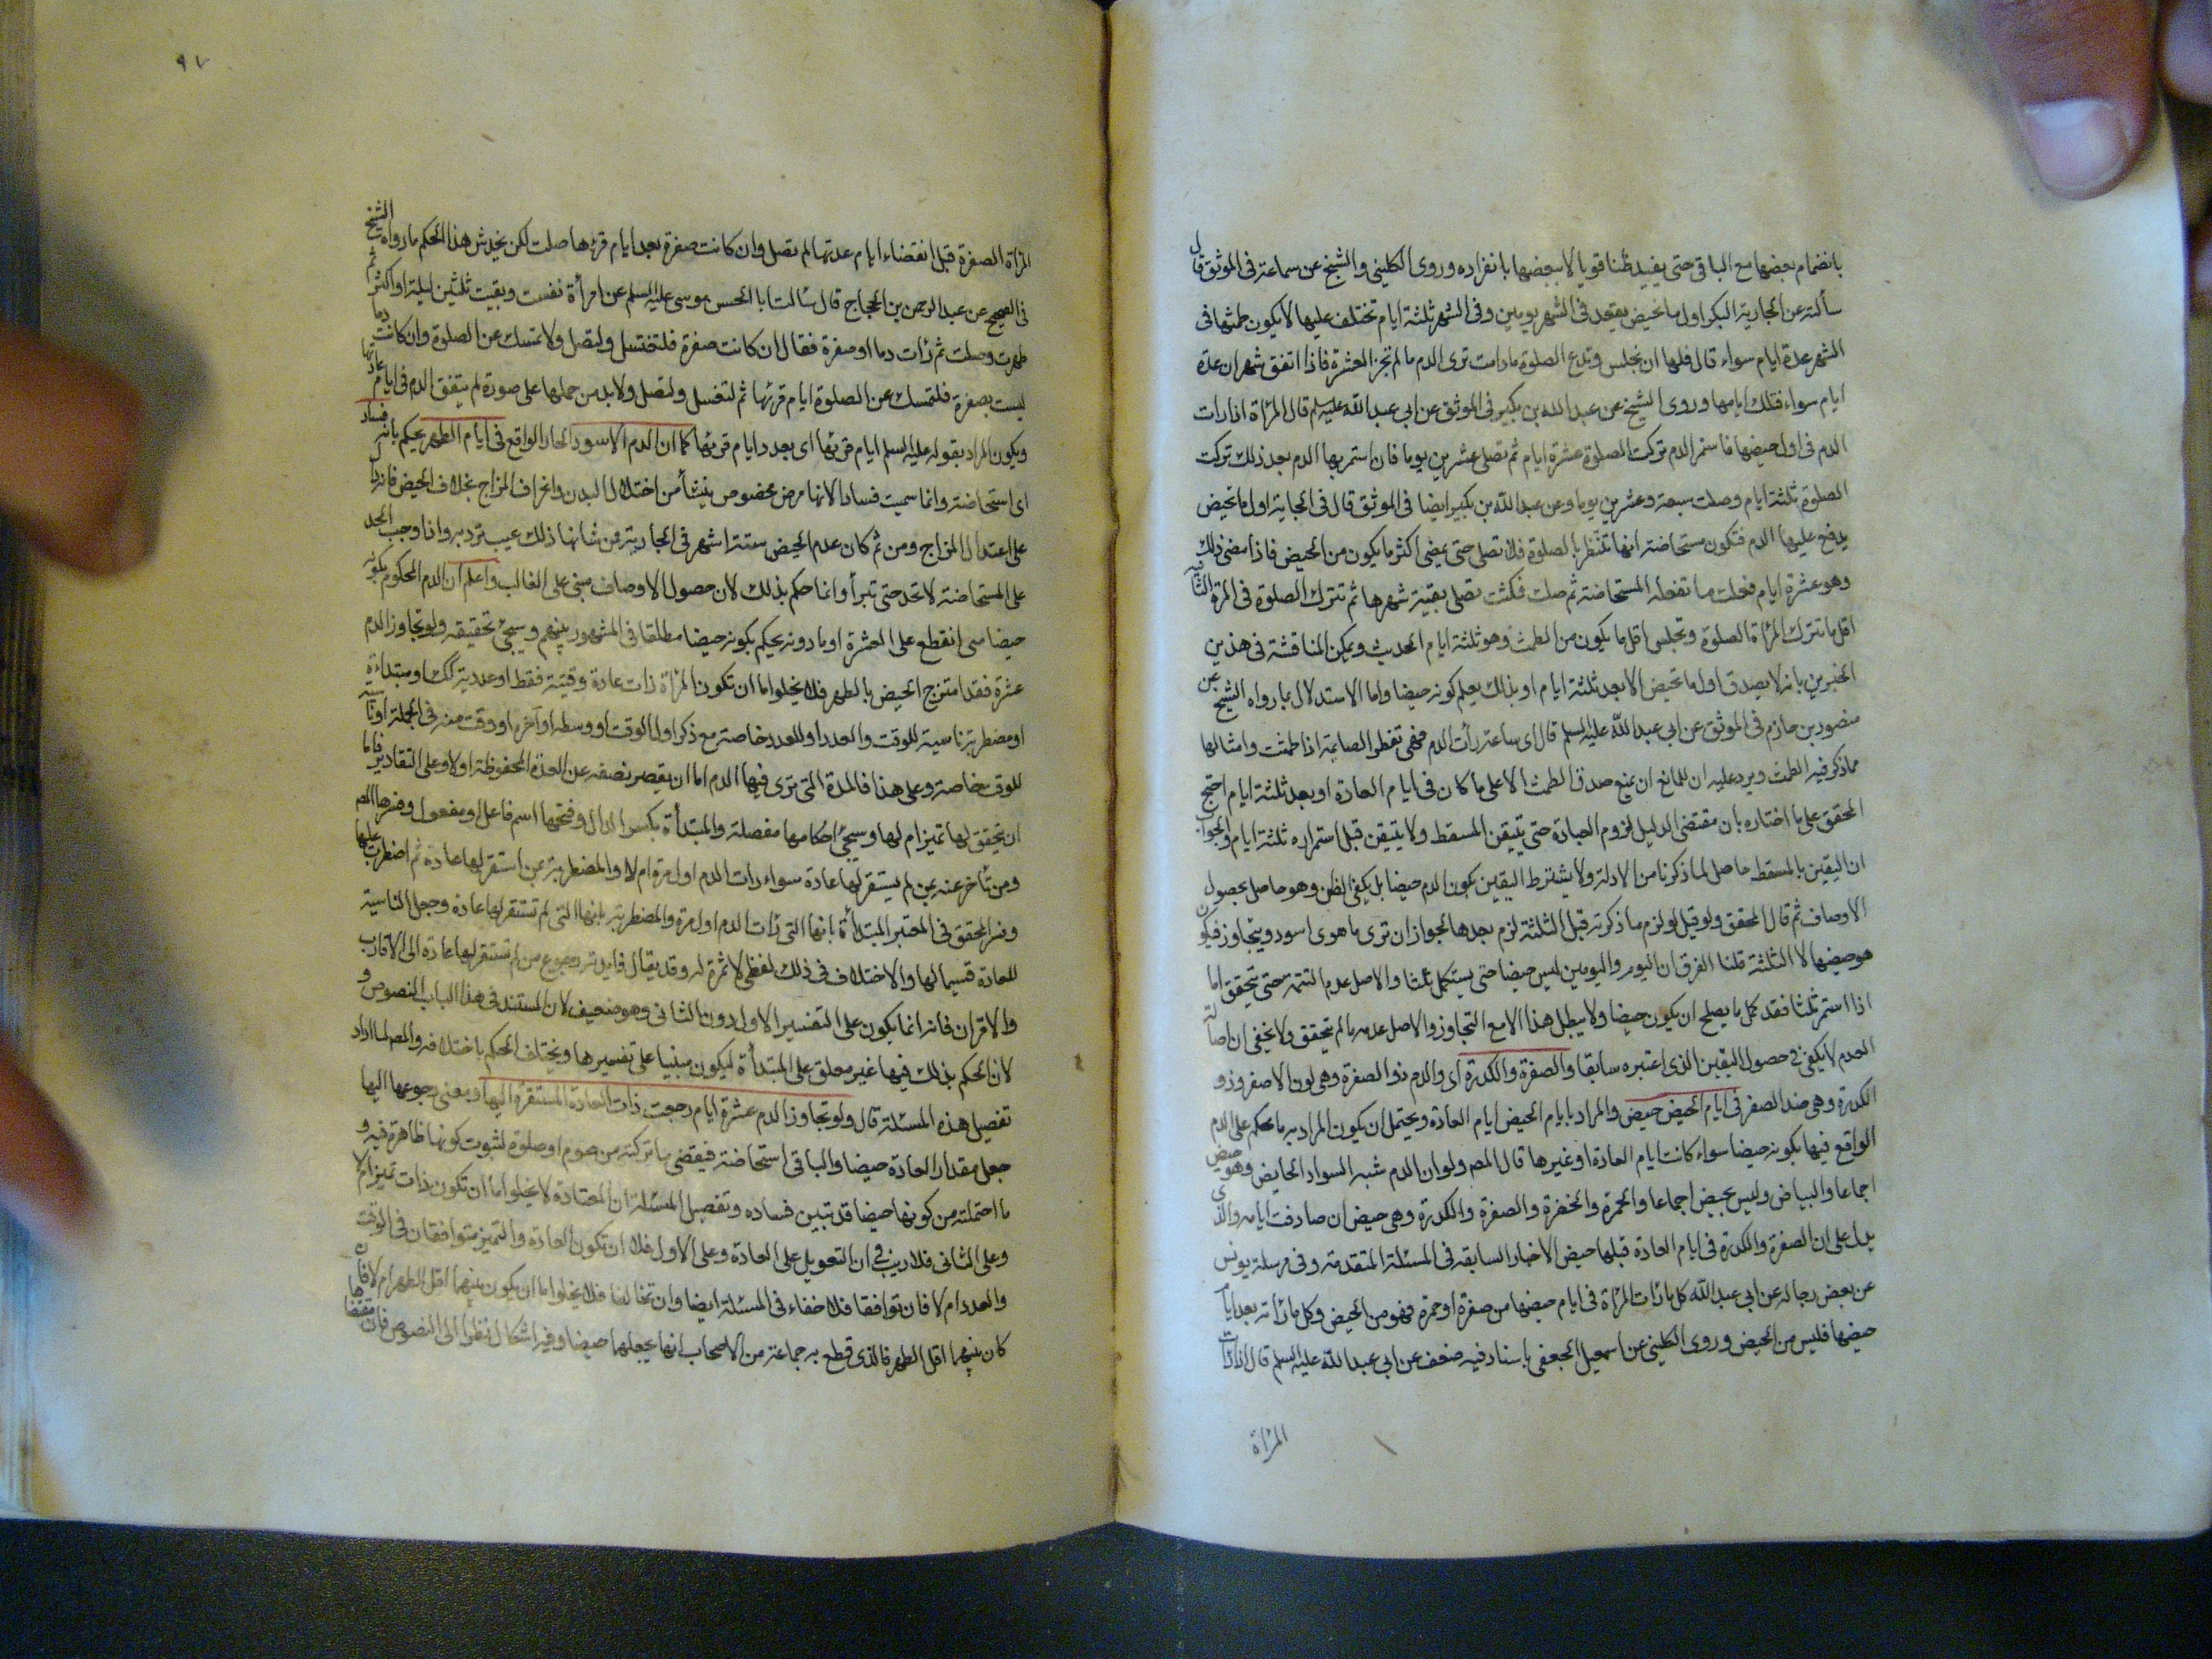 بانضمام بعضها مع الباقى حتى يفيد ظنا قويا لا ببعضها بانفراده وروى الكلينى والشيخ عن سماعة فى الموثق قال
سألته عن الجارية البكر اول ما تحيض يقعد فى الشهر يومين وفى الشهر ثلثة ايام تختلف عليها لا يكون طمثها فى
الشهر عدة ايام سواء قال فلها ان تجلس وتدع الصلوة ما دامت ترى الدم ما لم تجز العشرة فاذا اتفق شهران عدة
ايام سواء فتلك ايامها وروى الشيخ عن عبد الله بن بكير فى الموثق عن ابى عبد الله عليه سلم قال المرأة اذا رات
الدم فى اول حيضها فاستمر الدم تركت الصلوة عشرة ايام ثم تصلى عشرين يوما فان استمر بها الدم بعد ذلك تركت
الصلوة ثلثة ايام وصلت سبعة وعشرين يوما وعن عبد الله بن بكير ايضا فى الموثق قال فى الجارية اول ما تحيض
يدفع عليها الدم فتكون مستحاضة انها تنتظر بالصلوة فلا تصلى حتى يمضى اكثر ما يكون من الحيض فاذا مضى ذلك
وهو عشرة ايام فعلت ما تفعله المستحاضة ثم صلت فمكثت تصلى بقية شهرها ثم تترك الصلوة فى المرة الثانية
اقل ما تترك المرأة الصلوة وتجلس اقل ما يكون من الطمث وهو ثلثة ايام الحديث ويمكن المناقشة فى هذين
الخبرين بانه لا يصدق اول ما تحيض الا بعد ثلثة ايام او بذلك يعلم كونه حيضا واما الاستدلال بما رواه الشيخ عن
منصور بن حازم فى الموثق عن ابى عبد الله عليه السلم قال اى ساعة رأت الدم فهى تفطر الصايمة اذا طمثت وامثالها
مما ذكر فيه الطمث ويرد عليه ان للمانع ان يمنع صدق الطمث الا على ما كان فى ايام العادة او بعد ثلثة ايام احتج
المحقق على ما اختاره بان مقتضى الدليل لزوم العبادة حتى يتيقن المسقط ولا يتيقن قبل استمراره ثلثة ايام والجواب
ان اليقين بالمسقط حاصل لما ذكرنا من الادلة ولا يشترط اليقين بكون الدم حيضا بل يكفى الظن وهو حاصل بحصول
الاوصاف ثم قال المحقق ولو قيل لو لزم ما ذكرته قبل الثلثة لزم بعدها لجواز ان ترى ما هو اسود ويتجاوز فيكون
هو حيضها لا الثلثة قلنا الفرق ان اليوم واليومين ليس حيضا حتى يستكمل ثلثا والاصل عدم التتمة حتى يتحقق اما
اذا استمر ثلثا فقد كمل ما يصلح ان يكون حيضا ولا يبطل هذا الا مع التجاوز والاصل عدمه ما لم يتحقق ولا يخفى ان اصالة
العدم لا يكفى فى حصول اليقين الذى اعتبره سابقا والصفرة والكدرة اى والدم ذو الصفرة وهى لون الاصفر وذو
الكدرة وهى ضد الصفو فى ايام الحيض حيض والمراد بايام الحيض ايام العادة ويحتمل ان يكون المراد به ما يحكم على الدم
الواقع فيها بكونه حيضا سواء كانت ايام العادة او غيرها قال المص ولو ان الدم شبه السواد الحايض وهو حيض
اجماعا والبياض وليس بحيض اجماعا والحمرة والخضرة والصفرة والكدرة وهى حيض ان صادفت ايامه والذى
يدل على ان الصفرة والكدرة فى ايام العادة قبلها حيض الاخبار السابقة فى المسئلة المتقدمة وفى مرسلة يونس
عن بعض رجاله عن ابى عبد الله كل ما رأت المرأة فى ايام حيضها من صفرة او حمرة فهو من الحيض وكل ما رأته بعد ايام
حيضها فليس من الحيض وروى الكلينى عن اسمعيل الجعفى باسناد فيه ضعف عن ابى عبد الله عليه السلم قال اذا رأت
المرأة
٩٧
المرأة الصفرة قبل انقضاء ايام عدتها لم تصل وان كانت صفرة بعد ايام قرئها صلت لكن يخدش هذا الحكم ما رواه الشيخ
فى الصحيح عن عبد الرحمن بن الحجاج قال سالت ابا الحسن موسى عليه السلم عن امرأة نفست وبقيت ثلثين ليلة او اكثر ثم
طهرت وصلت ثم رأت دما او صفرة فقال ان كانت صفرة فلتغتسل ولتصل ولا تمسك عن الصلوة وان كانت دما
ليست بصفرة فلتمسك عن الصلوة ايام قرئها ثم لتغتسل ولتصل ولا بد من حملها على صورة لم يتفق الدم فى ايام عادتها
ويكون المراد بقوله عليه السلم ايام قرئها اى بعدد ايام قرئها كما ان الدم الاسود الحار الواقع فى ايام الطهر يحكم بانه فساد
اى استحاضة وانما سميت فسادا لانها مرض مخصوص ينشأ من اختلال البدن وانحراف المزاج بخلاف الحيض فانه
على اعتدال المزاج ومن ثم كان عدم الحيض ستة اشهر فى الجارية من شانها ذلك عيب ترد به واذا وجب الحد
على المستحاضة لا تحد حتى تبرأ وانما حكم بذلك لان حصول الاوصاف مبنى على الغالب واعلم ان الدم المحكوم بكونه
حيضا متى انقطع على العشرة او ما دونه يحكم بكونه حيضا مطلقا فى المشهور بينهم وسيجئ تحقيقه ولو تجاوز الدم
عشرة فقد امتزج الحيض بالطهر فلا يخلو اما ان تكون المرأة ذات عادة وقتية فقط او عددية كك او مبتداءة
او مضطربة ناسية للوقت والعدد او للعدد خاصة مع ذكر اول الوقت او وسطه او آخره او وقت منه فى الجملة او ناسية
للوقت خاصة وعلى هذا فالمدة التى ترى فيها الدم اما ان يقصر نصفه عن العدة المحفوظة اولا وعلى التقادير فاما
ان يتحقق لها تميز ام لها وسيجئ احكامها مفصلة والمبتدأة بكسر الدال وفتحها اسم فاعل او مفعول وفسرها المص
ومن تأخر عنه بمن لم يستقر لها عادة سواء رأت الدم اول مرة ام لا والمضطربة بمن استقر لها عادة ثم اضطربت عليها
وفسر المحقق فى المعتبر المبتدأة بانها التى رأت الدم اول مرة والمضطربة بانها التى لم تستقر لها عادة وجعل الناسية
للعادة قسيما لها والاختلاف فى ذلك لفظى لا ثمرة له وقد يقال فايدته رجوع من لم تستقر لها عادة الى الاقارب
والاقران فانه انما يكون على التفسير الاول دون الثانى وهو ضعيف لان المستند فى هذا الباب النصوص و
لان الحكم بذلك فيها غير معلق على المبتدأة ليكون مبنيا على تفسيرها ويختلف الحكم باختلافه والمص لما اراد
تفصيل هذه المسئلة قال ولو تجاوز الدم عشرة ايام رجعت ذات العادة المستقرة اليها ومعنى رجوعها اليها
جعل مقدار العادة حيضا والباقى استحاضة فيقضى ما تركته من صوم او صلوة لثبوت كونها ظاهرة فيه و
ما احتملته من كونها حيضا قد تبين فساده وتفصيل المسئلة ان المعتادة لا يخلوا اما ان تكون ذات تميز ام لا
وعلى الثانى فلا ريب فى ان التعويل على العادة وعلى الاول فلا ان تكون العادة والتميز متوافقان فى الوقت
والعدد ام لا فان توافقا فلا خفاء فى المسئلة ايضا وان تخالفا فلا يخلوا اما ان يكون بينهما اقل الطهر ام لا فان
كان بينهما اقل الطهر فالذى قطع به جماعة من الاصحاب انها يجعلهما حيضا وفيه اشكال نظرا الى النصوص فان مقتضاها